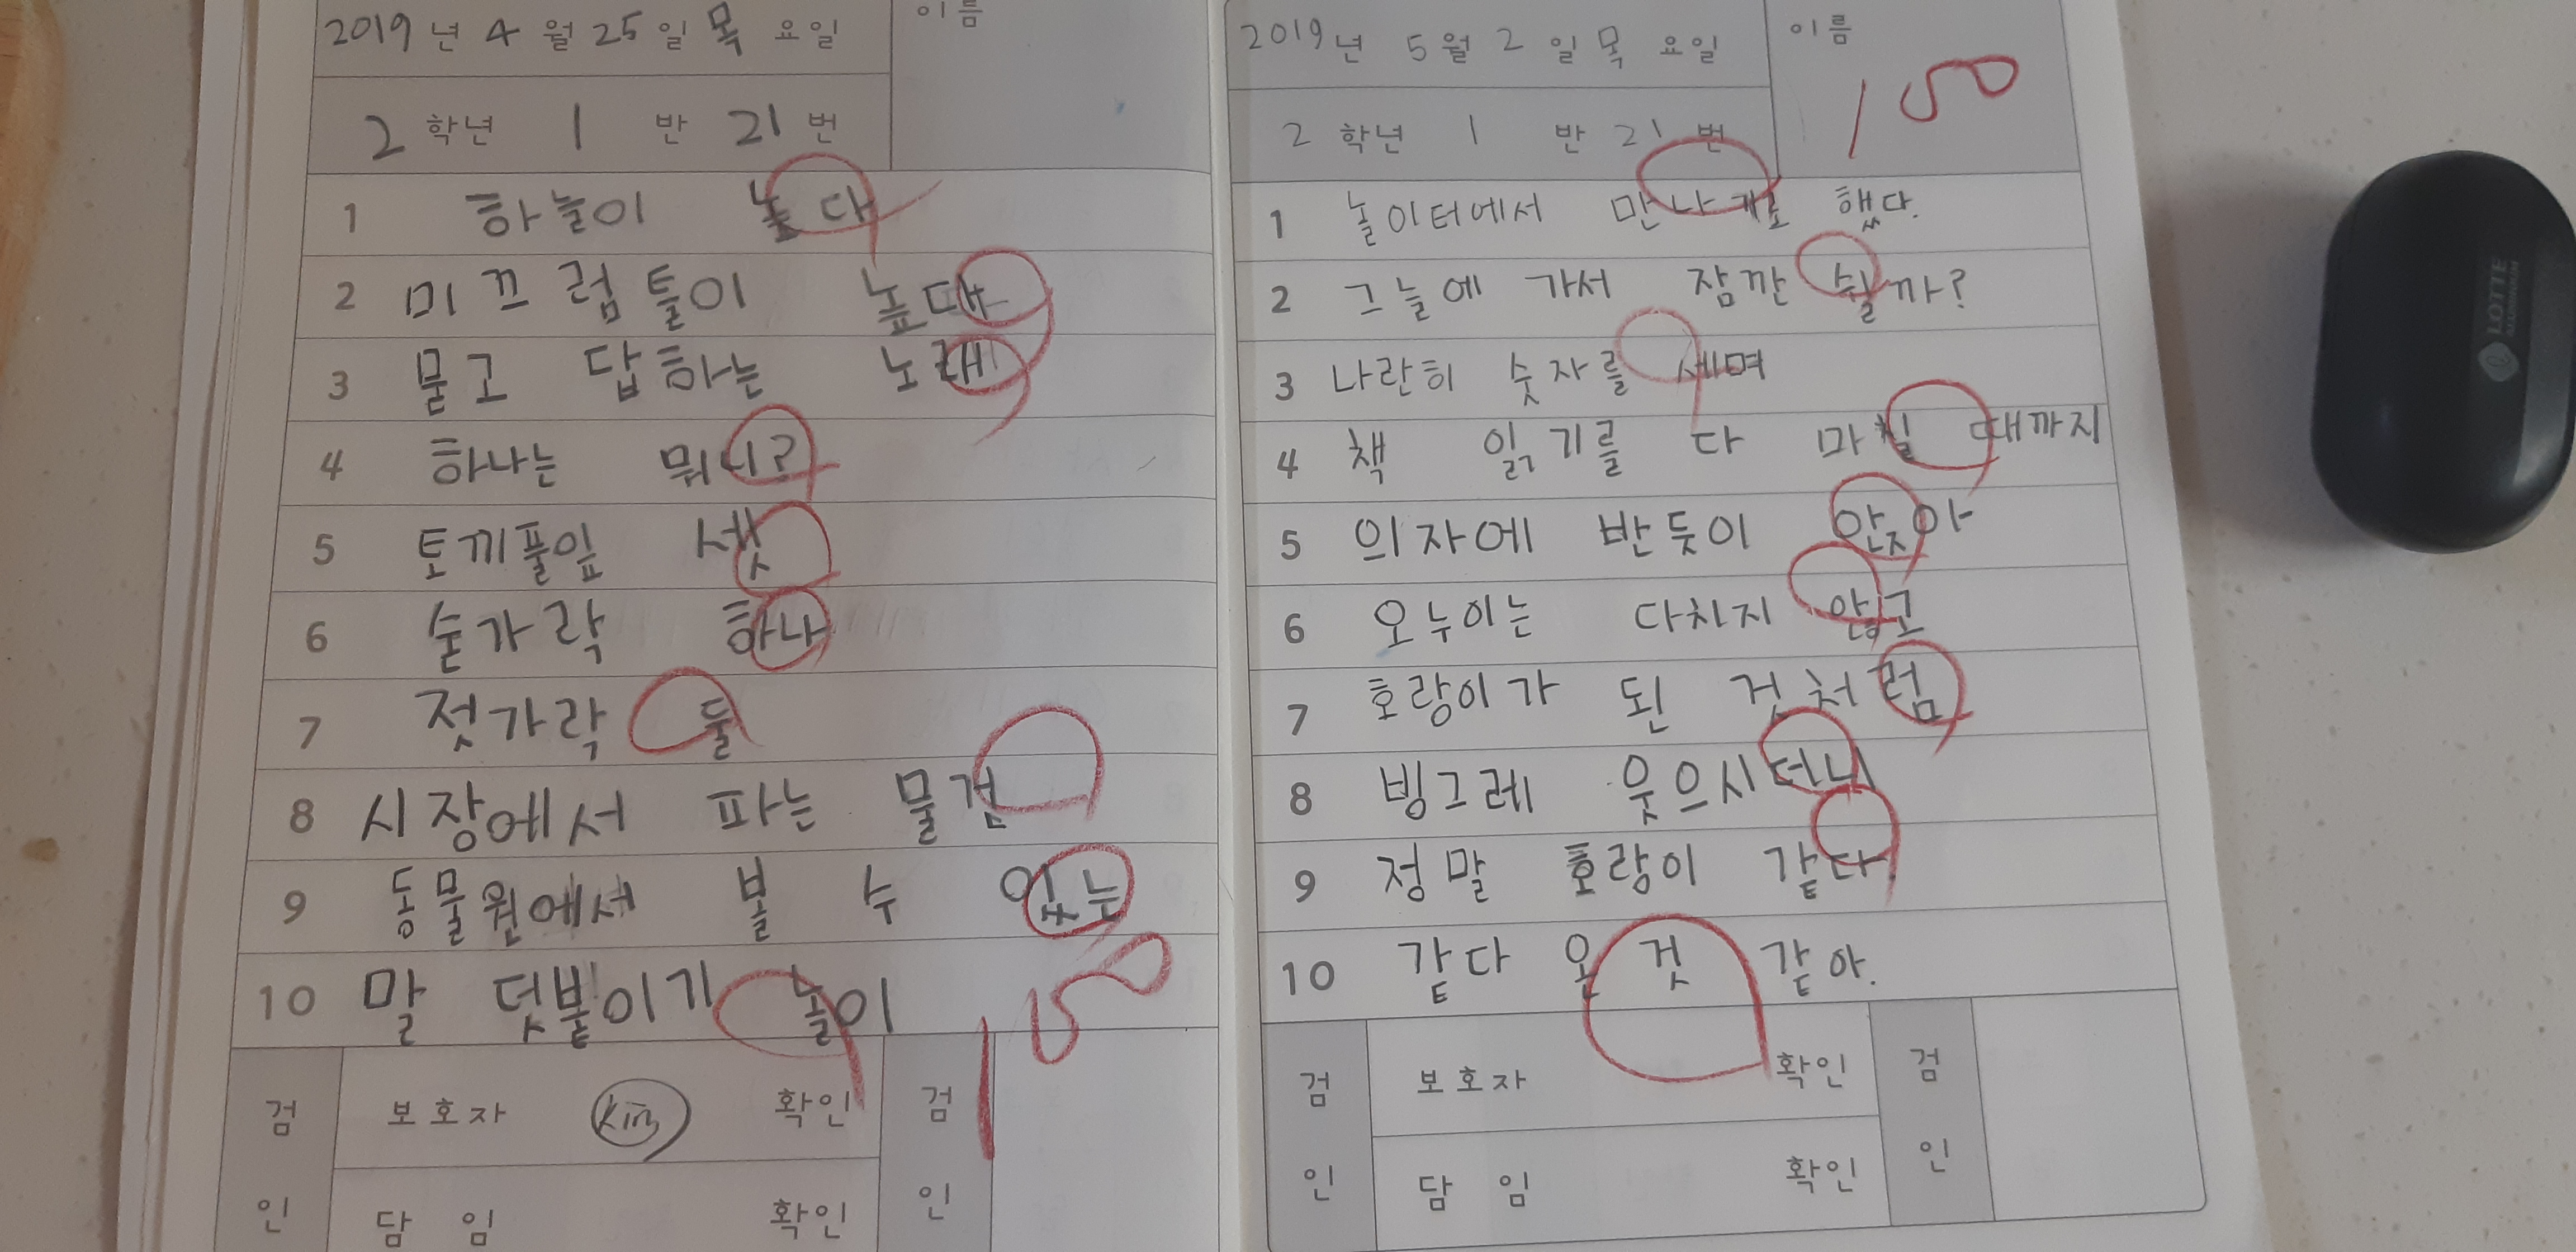 2019 년 4 월 25 일 목 요일
이름
2 학년 1 반 21 번
1 하늘이 높다
2 미끄럼틀이 높다
3 묻고 답하는 노래
4 하나는 뭐니?
5 토끼풀잎 셋
6 숟가락 하나
7 젓가락 둘
8 시장에서 파는 물건
9 동물원에서 볼 수 있는
10 말 덧붙이기 놀이
100
검 인
보호자 Kim 확인
담 임 확인
검 인
2019 년 5 월 2 일 목 요일
이름
100
2 학년 1 반 21 번
1 놀이터에서 만나기로 했다.
2 그늘에 가서 잠깐 쉴까?
3 나란히 숫자를 세며
4 책 읽기를 다 마칠 때까지
5 의자에 반듯이 앉아
6 오누이는 다치지 않고
7 호랑이가 된 것처럼
8 빙그레 웃으시더니
9 정말 호랑이 같다
10 같다 온 것 같아.
검 인
보호자 확인
담 임 확인
검 인
LOTTE